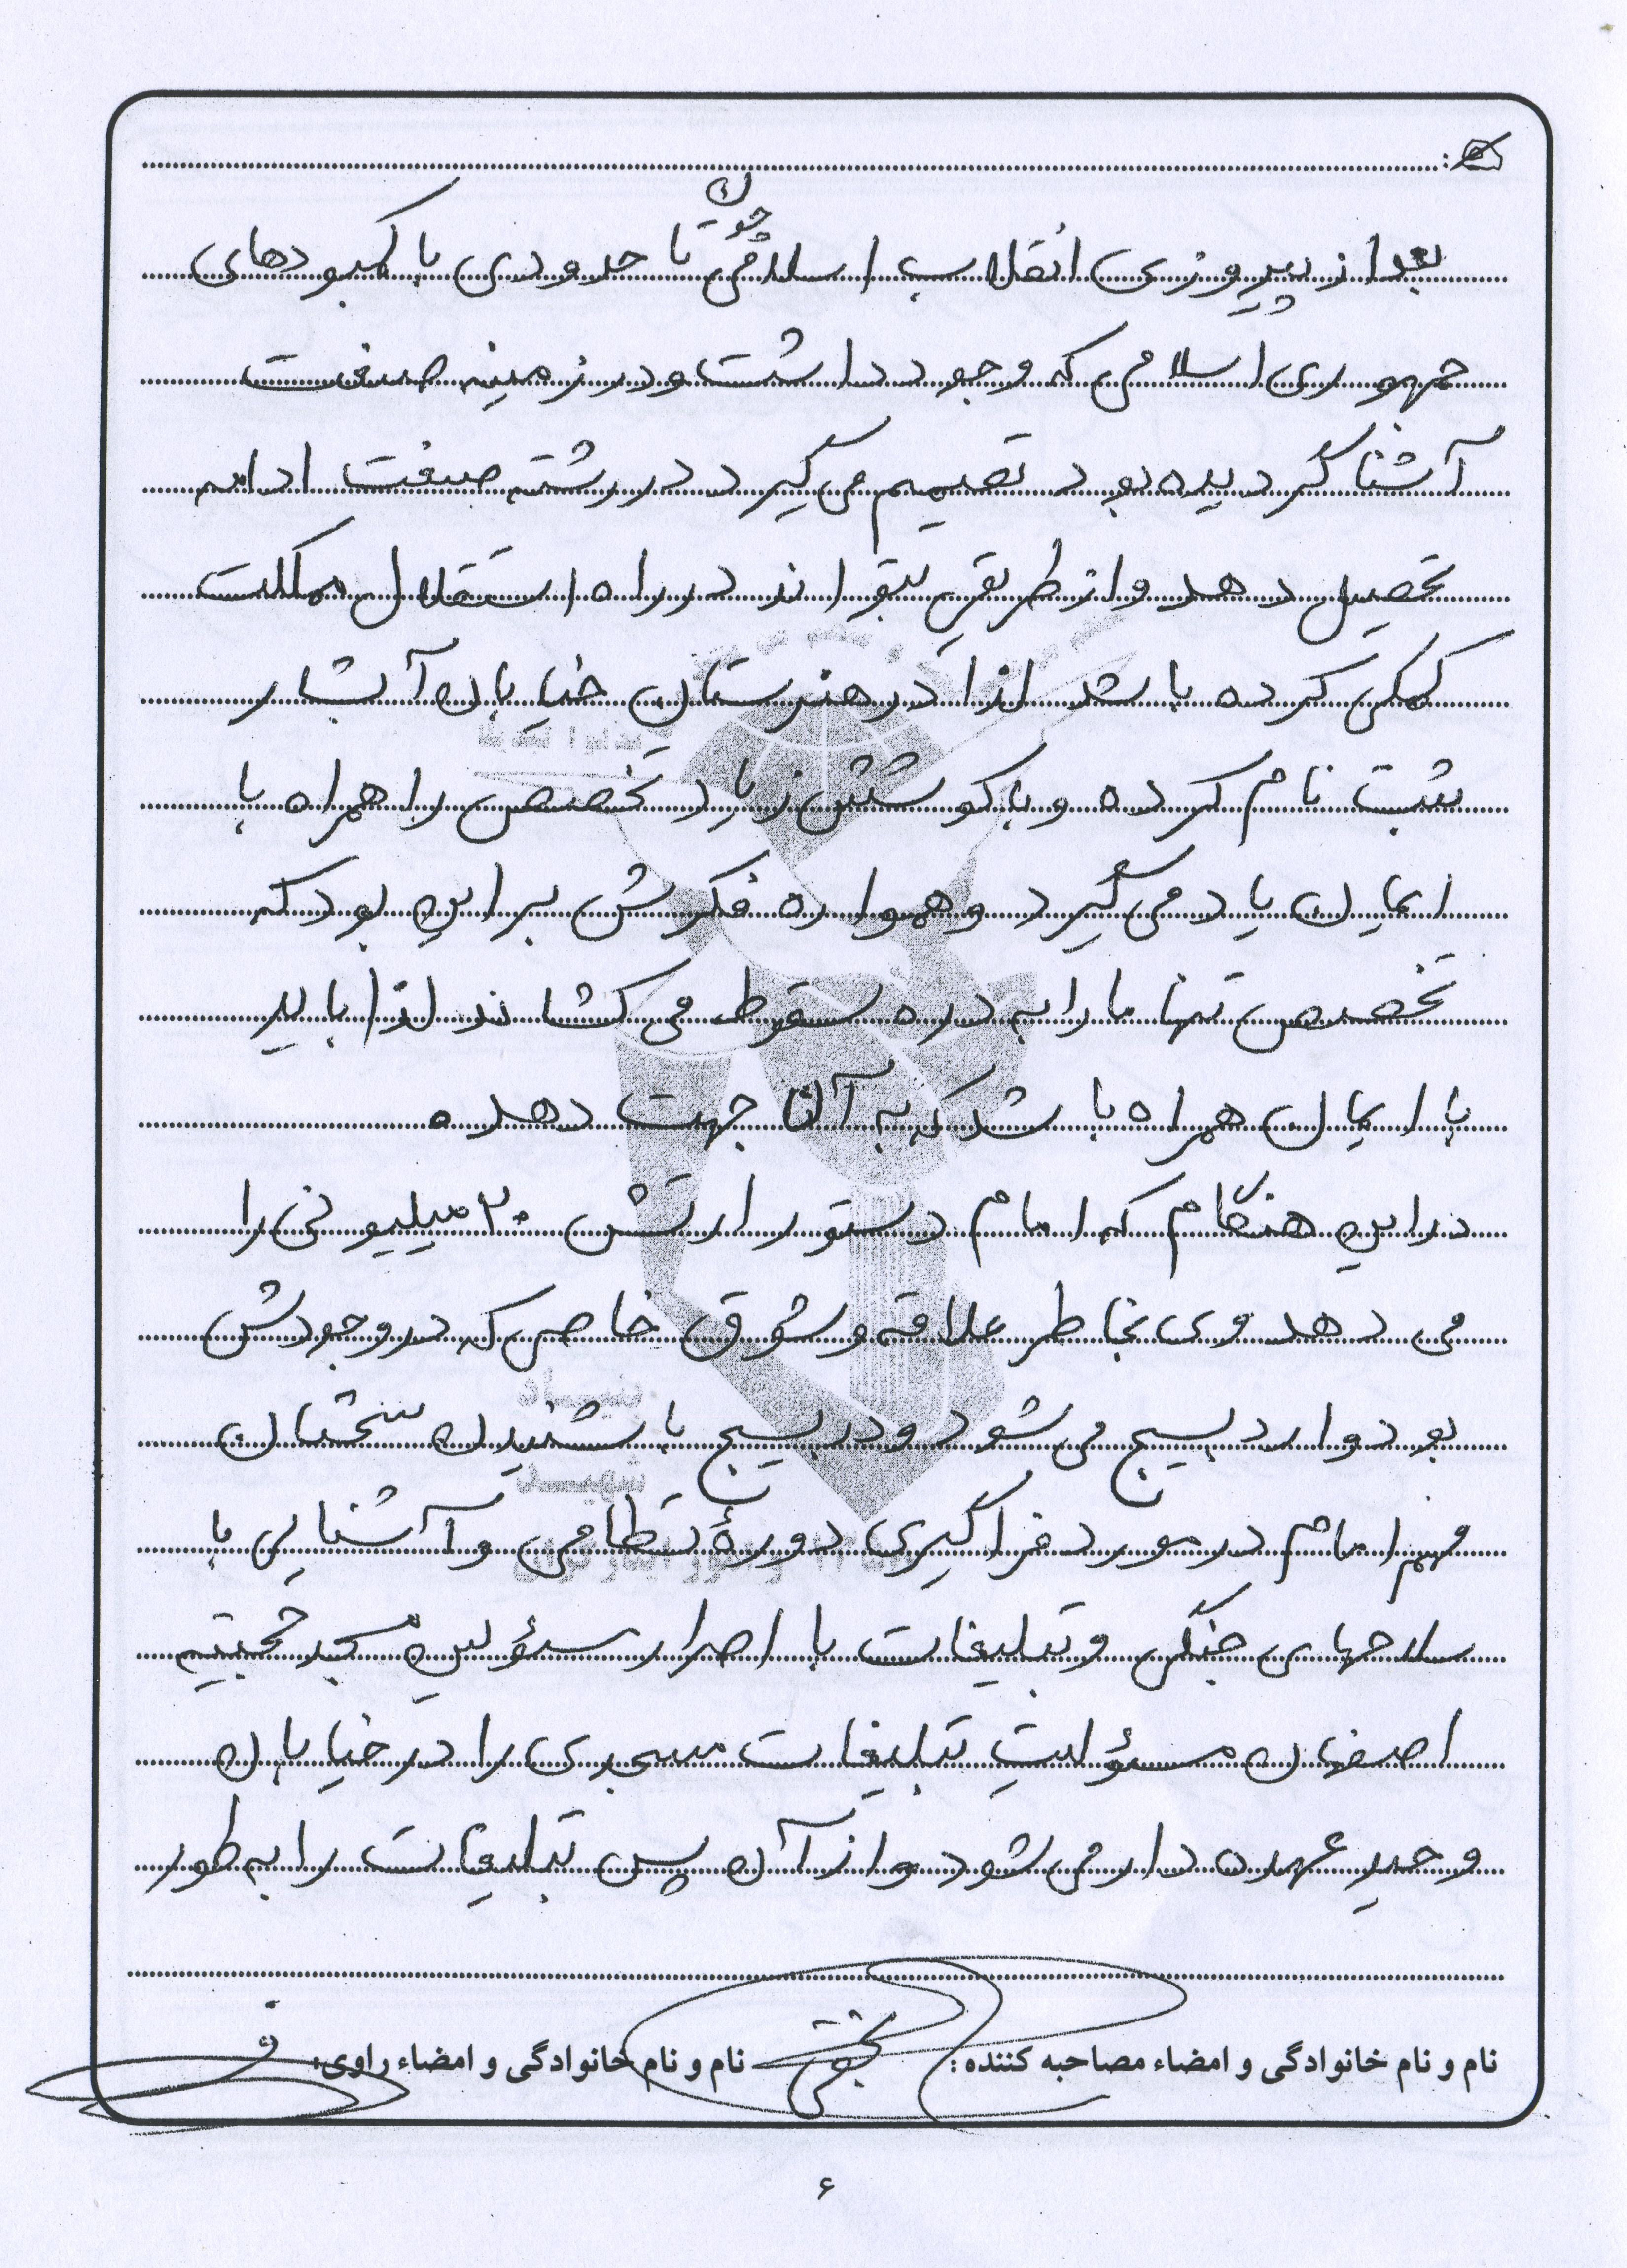 بعد از پیروزی انقلاب اسلامی چون تا حدودی با کمبودهای
جمهوری اسلامی که وجود داشت و در زمینه صنعت
آشنا گردیده بود تصمیم می‌گیرد در رشته صنعت ادامه
تحصیل دهد و از طریقی بتواند در راه استقلال مملکت
کمکی کرده باشد لذا در هنرستان خیابان آبشار
ثبت نام کرده و با کوشش زیاد تخصص را همراه با
ایمان یاد می‌گیرد و همواره فکرش بر این بود که
تخصص تنها ما را به دره سقوط می‌کشاند لذا باید
با ایمان همراه باشد که به آن جهت دهد
در این هنگام که امام دستور ارتش ۲۰ میلیونی را
می دهد وی بخاطر علاقه و شوق خاصی که در وجودش
بود وارد بسیج می‌شود و در بسیج با شنیدن سخنان
مهم امام در مورد فراگیری دورهٔ نظامی و آشنایی با
سلاحهای جنگی و تبلیغات با اصرار مسؤلین مسجد حجتیه
اصفهان مسؤلیت تبلیغات مسجدی را در خیابان
وحید عهده دار می‌شود و از آن پس تبلیغات را به طور
نام و نام خانوادگی و امضاء مصاحبه کننده:
نام و نام خانوادگی و امضاء راوی:
۶